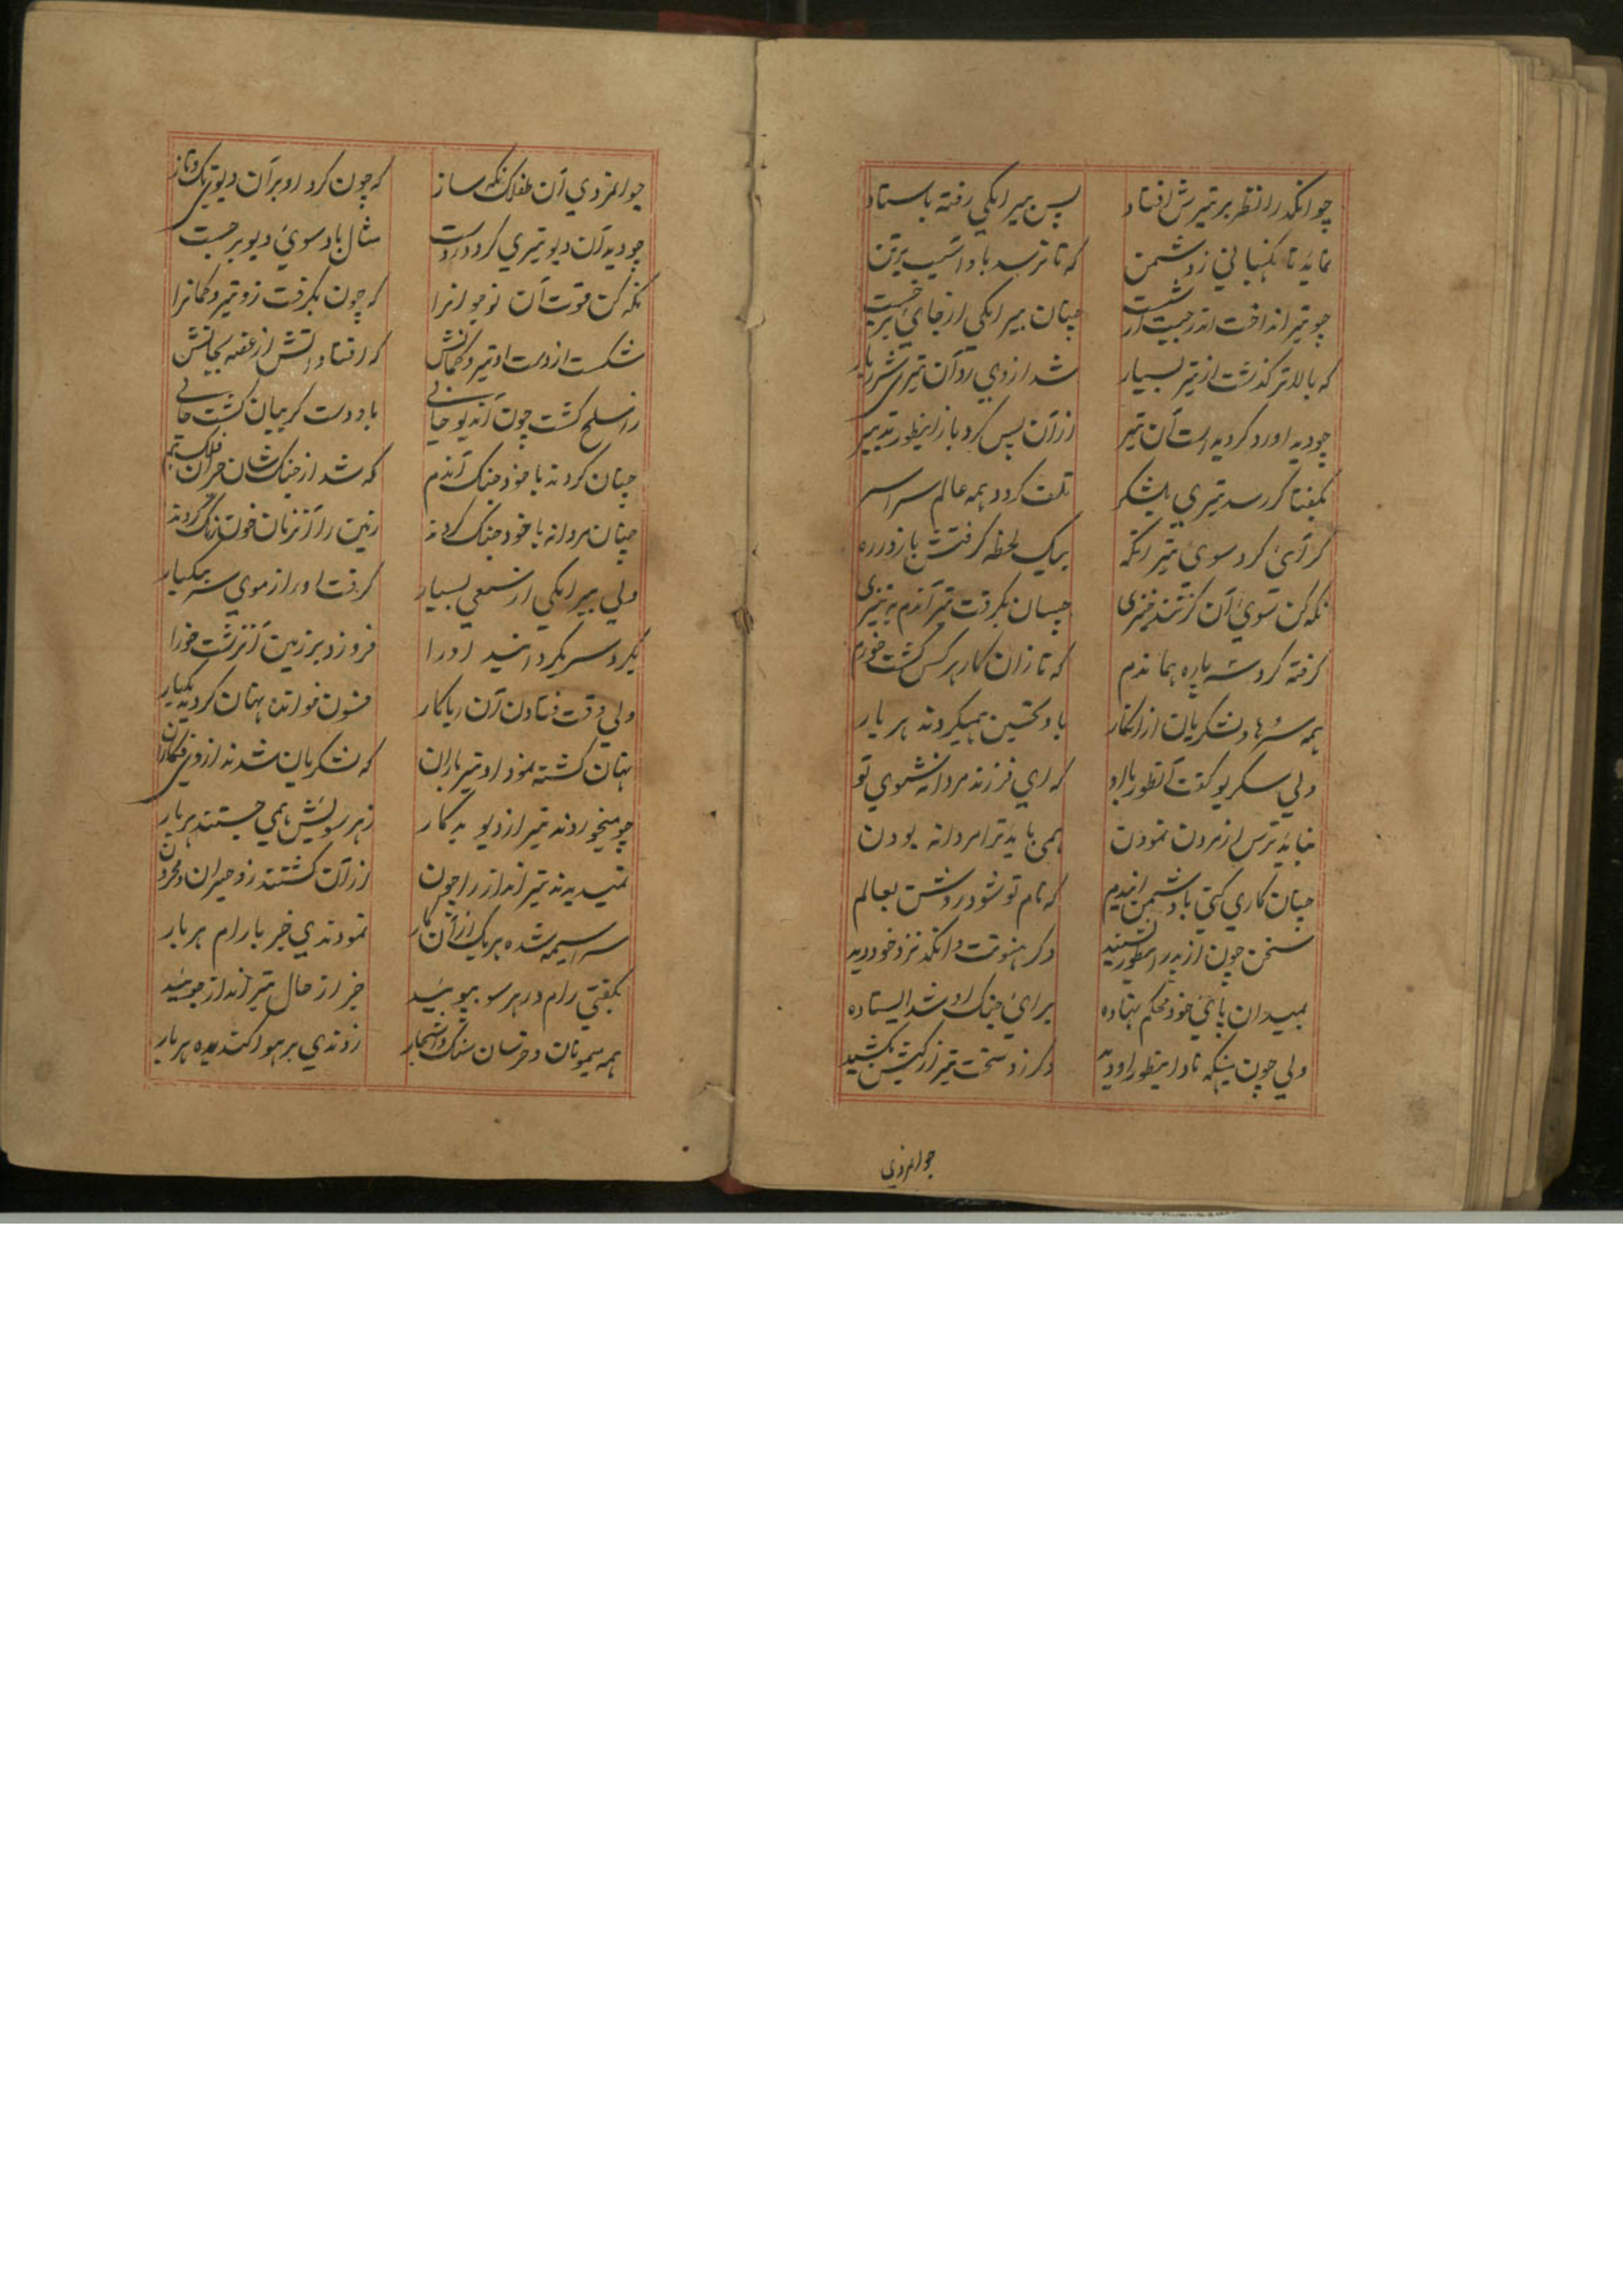 چو انکد را نظر بر تیرش افتاد پس بیرانکی رفته باستاد
نماید تا نکهبانی ز دشمن که تا نرسد باو آسیب برتن
چو تیر انداخت اندرجیت از شست چنان بیرانکی از جای برجست
که بالاتر کذشت از تیر بسیار شد از وی رد آن تیر شرربار
چو دید او رد کردیده است آن تیر ازآن پس کرد باز اینطور تدبیر
بکفتا کر رسد تیری بلشکر تلف کردد همه عالم سراسر
کرآئ کرد سوئ تیر انکه بیک لحظه کرفتش باز در ره
نکه کن سوئ آن کز تندخیزی چسان بکرفت تیر آندم به تیزی
کرفته کرد سه پاره هماندم که تا زان کار هر کس کشت خورم
همه سرها و لشکریان ازانکار باو تحسین همیکردند هر بار
ولی سکریو کفت آنطور با او که ای فرزند مردانه شوی تو
نباید ترس از مردن نمودن همی باید ترا مردانه بودن
چنان کاری کنی با دشمن ایندم که نام تو شود روشن بعالم
سخن چون از پدر اینطور بشنید دکر هنونت و انکد نزد خود دید
بمیدان پائ خود محکم نهاده برائ جنک او شد ایستاده
ولی چون میکهنادا اینطور او دید دکر زو سخت تیر از کیش بکشید
جوانمردی
جوانمردی آن طفلک نکه ساز که چون کرد او برآن دیو تک و تاز
چو دید آن دیو تیری کرد در دست مثال باد سوئ دیو برجست
نکه کن قوت آن نوجوانرا که چون بکرفت زو تیر و کمانرا
شکست از دست او تیر و کمانش که افتاد آتش از غصه بجانش
ز اسلح کشت چون آندیو خالی باو دست کریبان کشت حالی
چنان کردند با خود جنک آندم که شد از جنک شان حیران فلک هم
چنان مردانه با خود جنک کردند زمین را آنزمان خون رنک کردند
ولی بیرانکی از سعی بسیار کرفت او را ز موی سر بیکبار
بکرد سر بکردانید او را فرو زد بر زمین آنزشت خو را
ولی وقت فتادن آن ریاکار فسون خواند نهان کردید یکبار
نهان کشته نمود او تیرباران که لشکریان شدند از وی فکاران
چو میخوردند تیر از دیو بدکار ز هر سویش همی جستند هر بار
نمیدیدند تیر انداز را چون ازآن کشتند زو حیران و محزون
سراسیمه شده هر یک ازآن کار نمودندی خبر با رام هر بار
بکفتی رام در هر سو بپوئید خبر از حال تیر انداز جوئید
همه میمونان و خرسان سنک و اشجار زدندی بر هوا کنده هر بار